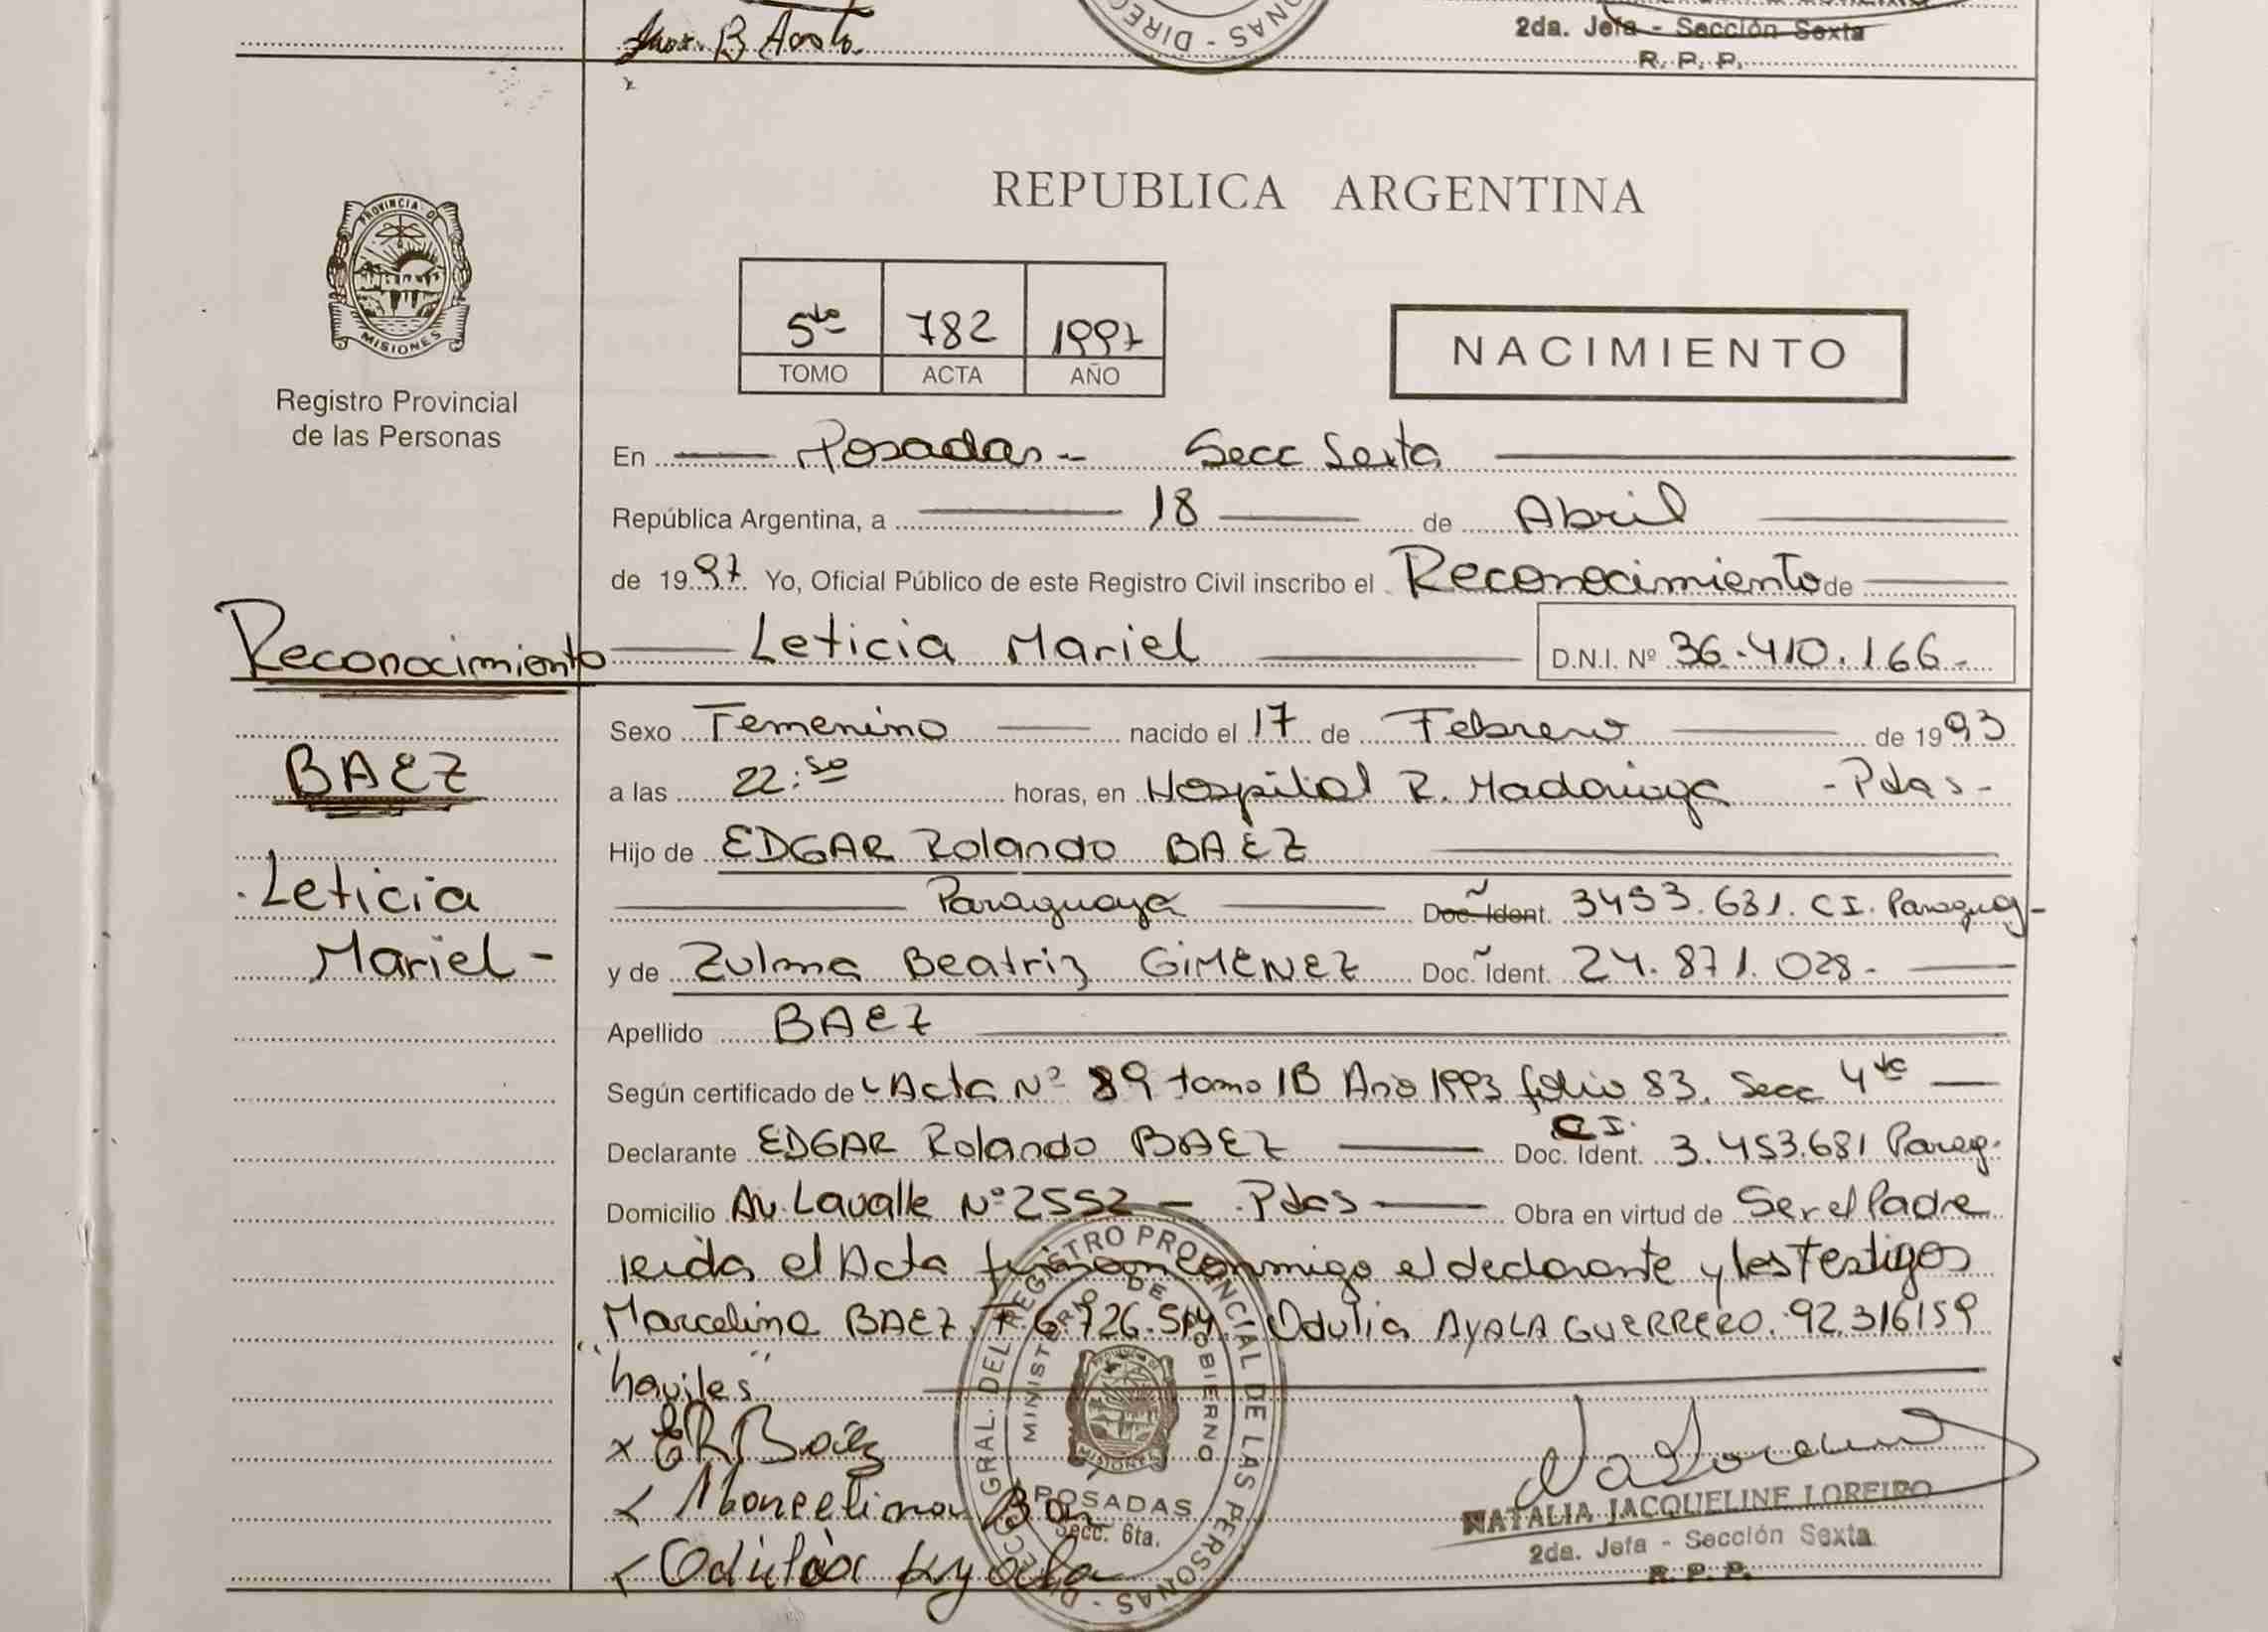 B Acosta
2da. Jefa - Sección Sexta
R. P. P.
PROVINCIA DE MISIONES
Registro Provincial
de las Personas
REPUBLICA ARGENTINA
5to 782 1997
TOMO ACTA AÑO
NACIMIENTO
En Posadas - Secc Sexta
República Argentina, a 18 de Abril
de 1997 Yo, Oficial Público de este Registro Civil inscribo el Reconocimiento de
Leticia Mariel D.N.I. Nº 36.410.166.
Reconocimiento
BAEZ
Leticia
Mariel -
Sexo Femenino nacido el 17 de Febrero de 1993
a las 22:50 horas, en Hospital R. Madariaga - Pdas -
Hijo de EDGAR Rolando BAEZ
Paraguaya Doc. Ident. 3453.681. C I. Paraguay
y de Zulma Beatriz GIMENEZ Doc. Ident. 24.871.028.
Apellido BAEZ
Según certificado de Acta Nº 89 tomo 1B Año 1993 folio 83. Secc 4ta
Declarante EDGAR Rolando BAEZ C I. Doc. Ident. 3.453.681 Parag.
Domicilio Av. Lavalle Nº 2552 - Pdas Obra en virtud de Ser el Padre
leida el Acta firman conmigo el declarante y los testigos
Marcelina BAEZ Odulia AYALA GUERRERO. 92.316159
"haviles"
x ER Baéz
Marcelina
Ayala
DIRECC. GRAL. DEL REGISTRO PROVINCIAL DE LAS PERSONAS
MINISTERIO DE GOBIERNO
MISIONES
POSADAS
Secc. 6ta.
NATALIA JACQUELINE LOREIRO
2da. Jefa - Sección Sexta
R. P. P.